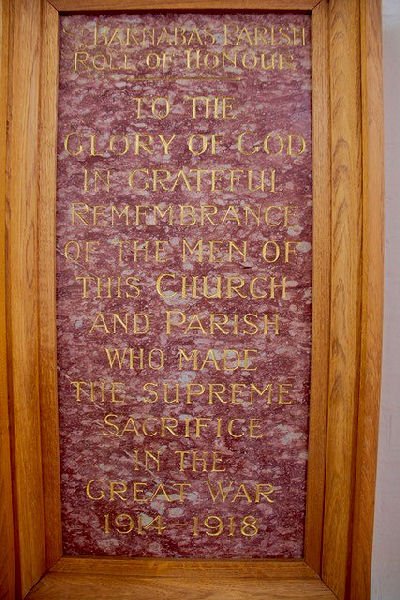 St BARNABAS PARISH
ROLL OF HONOUR
TO THE
GLORY OF GOD
IN GRATEFUL
REMEMBRANCE
OF THE MEN OF
THIS CHURCH
AND PARISH
WHO MADE
THE SUPREME
SACRIFICE
IN THE
GREAT WAR
1914-1918